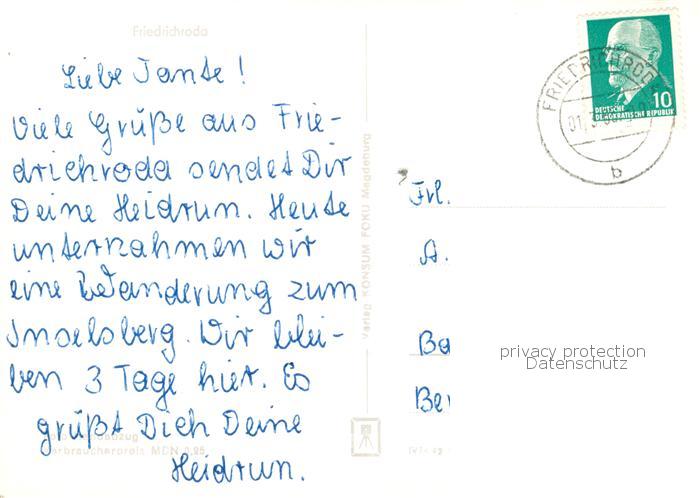 Friedrichroda
Liebe Tante!
Viele Grüße aus Frie-
drichroda sendet Dir
Deine Heidrun. Heute
unternahmen wir
eine Wanderung zum
Inselsberg. Wir blei-
ben 3 Tage hier. Es
grüßt Dich Deine
Heidrun.
Verlag KONSUM FOKU Magdeburg
FRIEDRICHRODA
b
10
DEUTSCHE
DEMOKRATISCHE REPUBLIK
Frl.
A.
Ba
Ber
privacy protection
Datenschutz